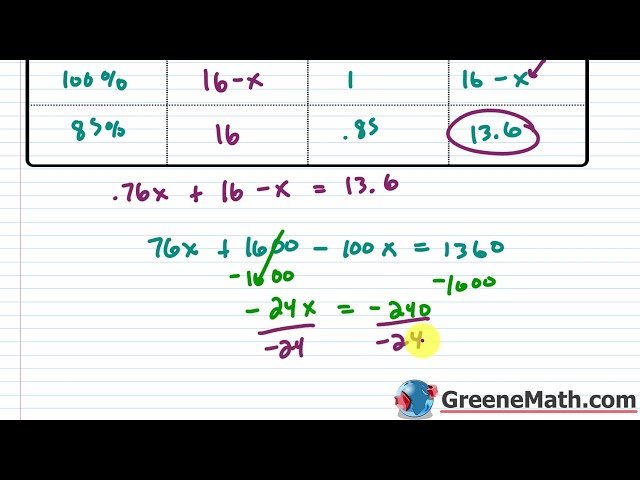 100% 16-x 1 16-x
85% 16 .85 13.6
.76x + 16 - x = 13.6
76x + 1600 - 100x = 1360
-1600 -1600
-24x = -240
-24 -24
GreeneMath.com